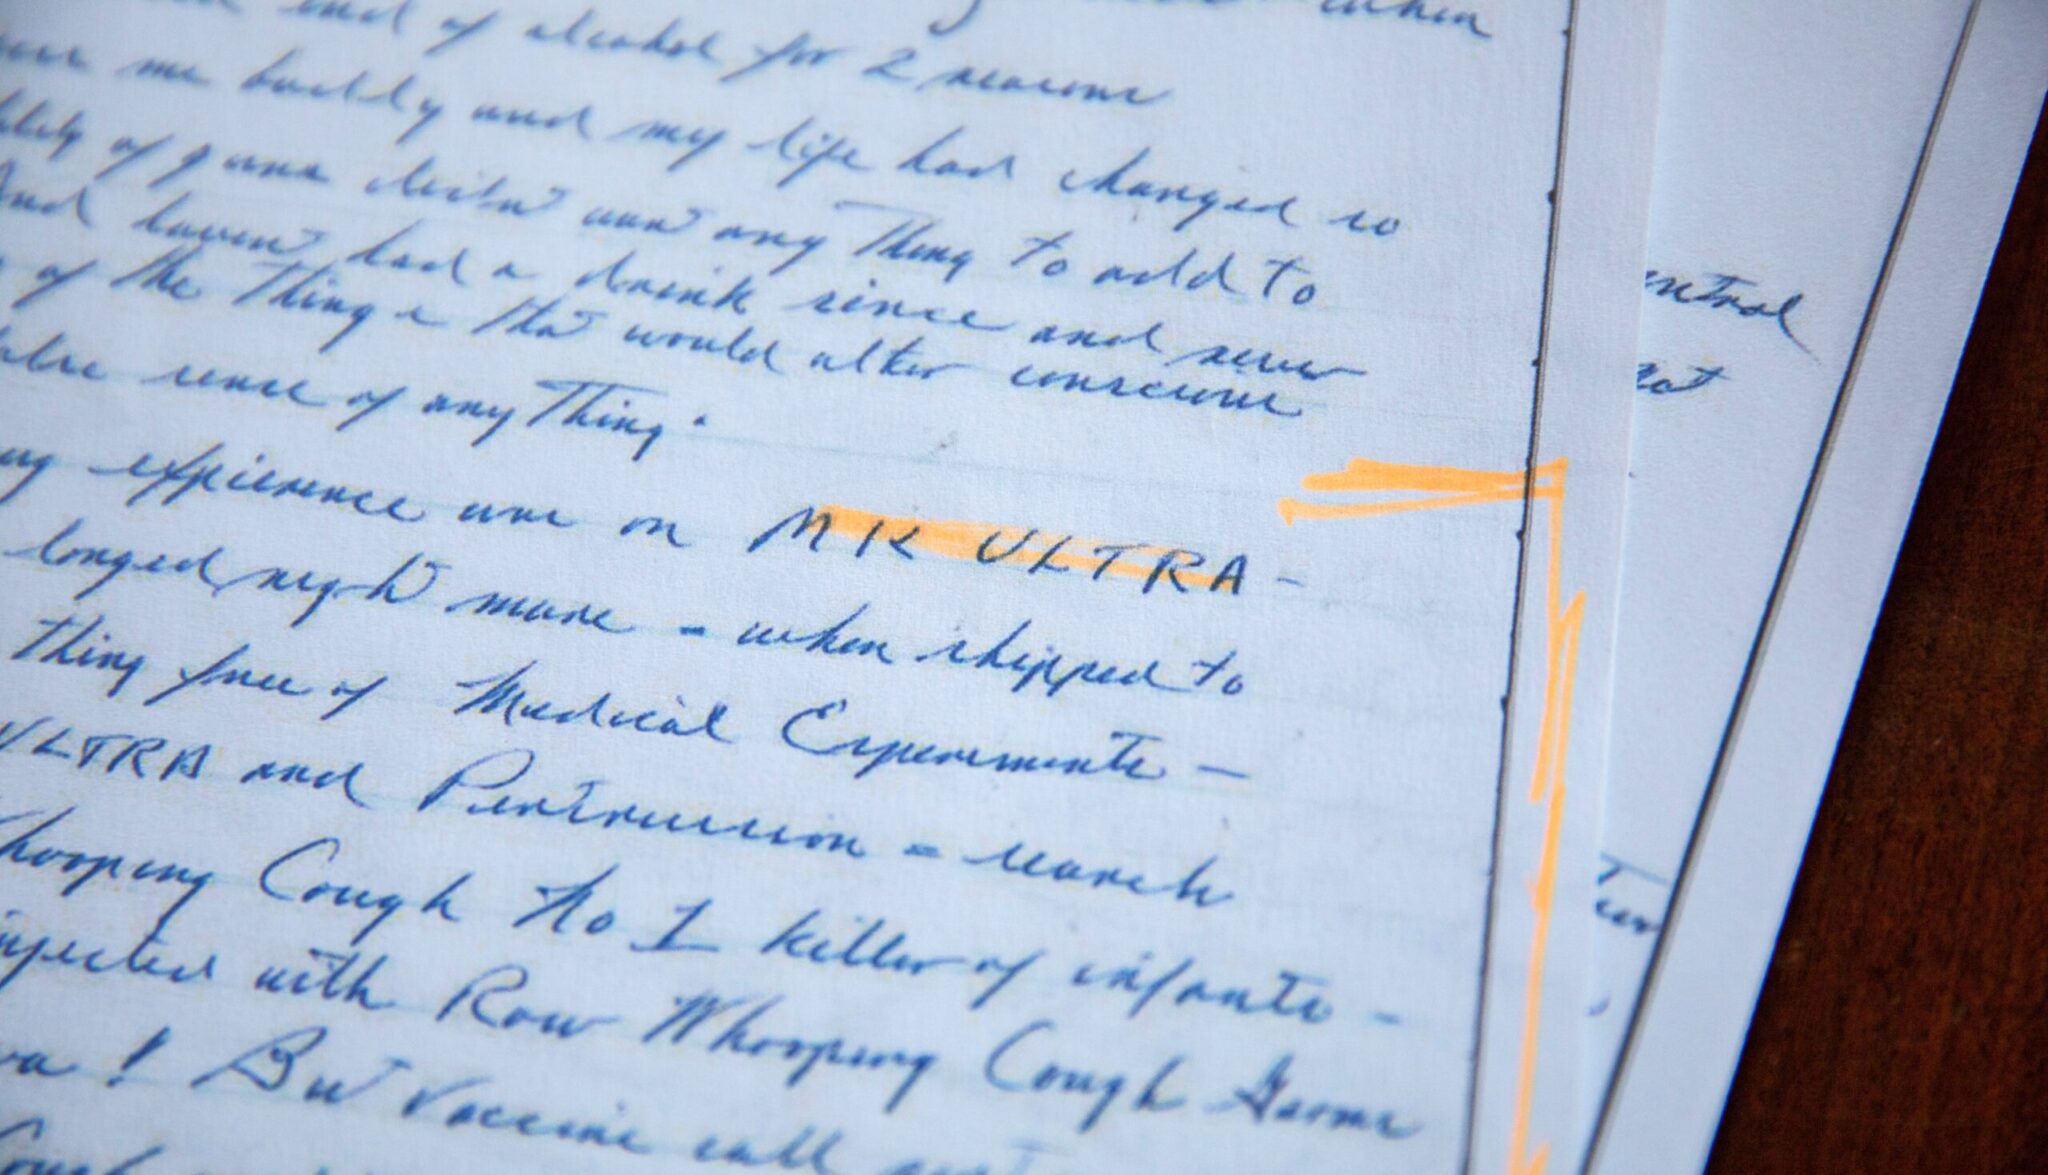 when
end of alcohol for 2 reasons
me buddy and my life had changed so
of guna didn't wan't any Thing to add to
And haven't had a drink since and never
of the Things that would alter conscious
sense of any Thing.
expierence was on MK ULTRA -
longed nigh't mare - when shipped to
thing free of Medical Experiments -
ULTRA and Pertrussion = search
Whooping Cough No 1 killer of infants -
injected with Raw Whooping Cough Germs
! But Vaccine call
Cough
ntrol
not